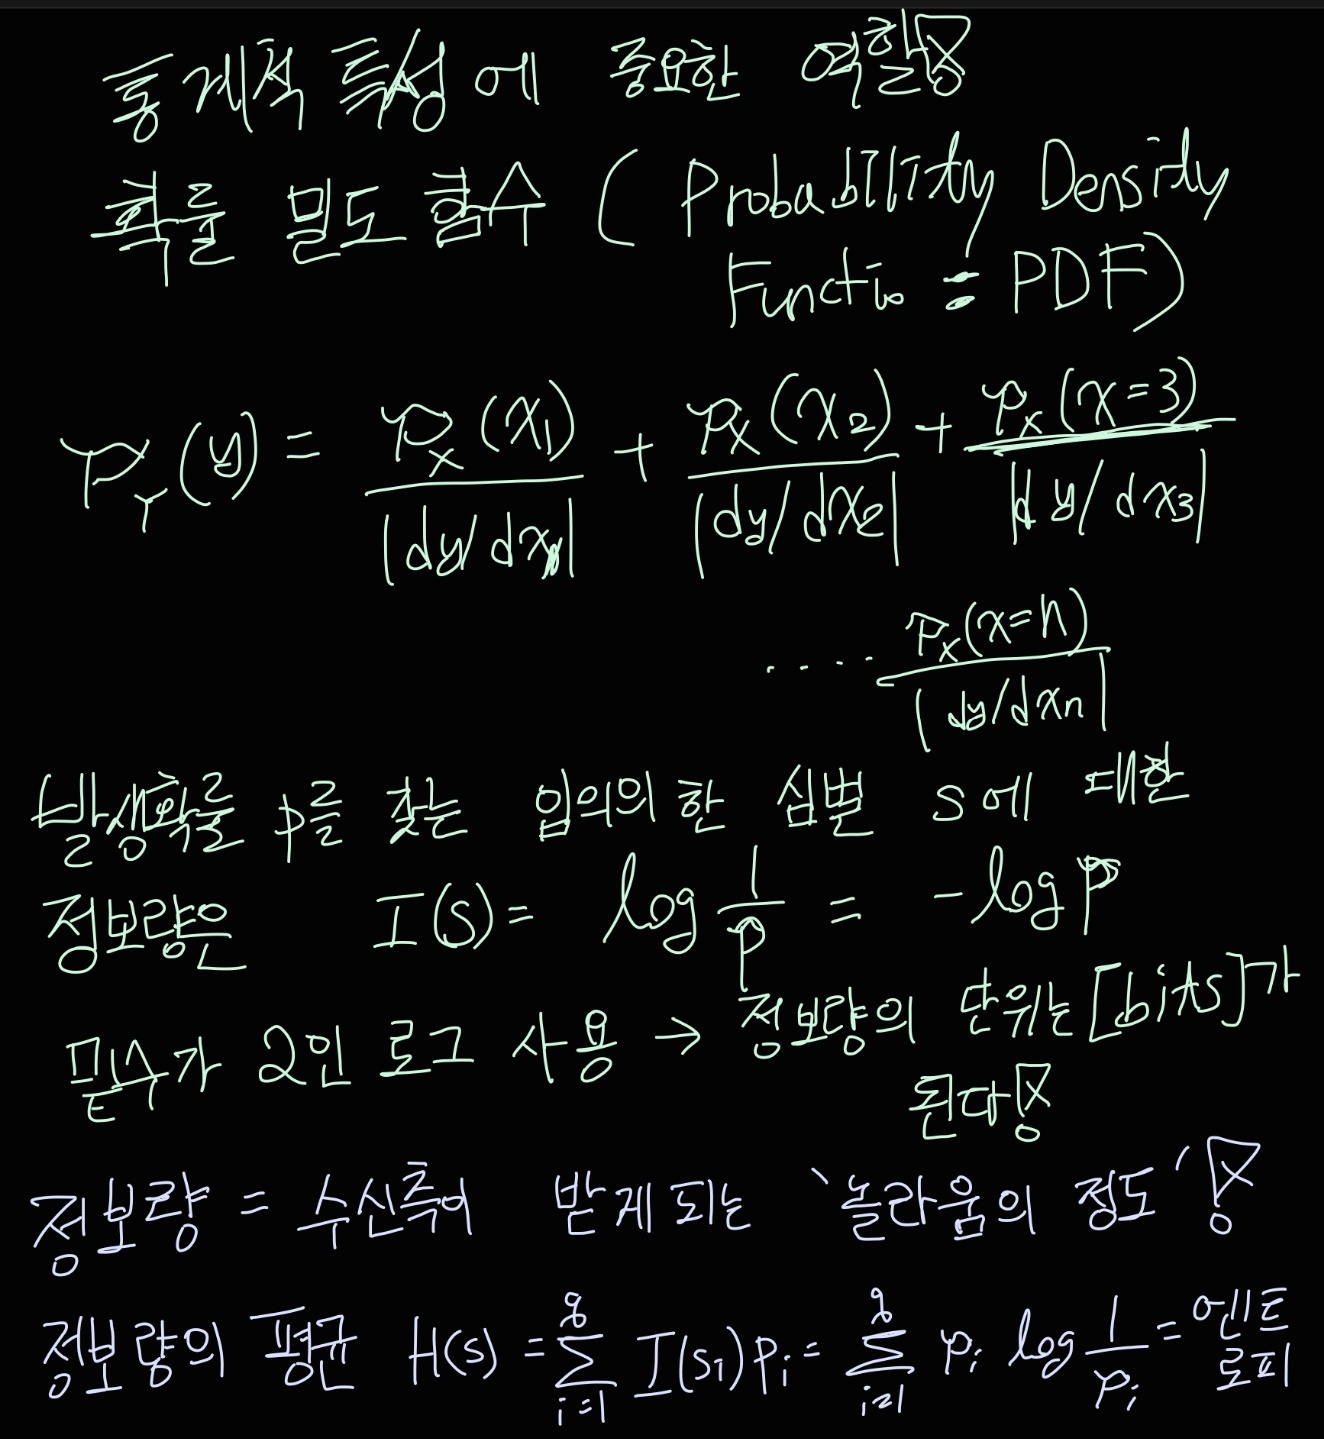 통계적 특성에 중요한 역할!
확률 밀도 함수 ( Probability Density
Functio = PDF)
P_Y(y) = P_X(x_1)/|dy/dx_1| + P_X(x_2)/|dy/dx_2| + P_X(x=3)/|dy/dx_3|
.... P_X(x=n)/|dy/dx_n|
발생확률 p를 찾는 임의의 한 심벌 s에 대한
정보량은 I(s) = log 1/p = -log p
밑수가 2인 로그 사용 → 정보량의 단위는 [bits]가
된다!
정보량 = 수신측이 받게 되는 '놀라움의 정도'!
정보량의 평균 H(s) = Σ_{i=1}^{q} I(s_i) P_i = Σ_{i=1}^{q} P_i log 1/P_i = 엔트
로피